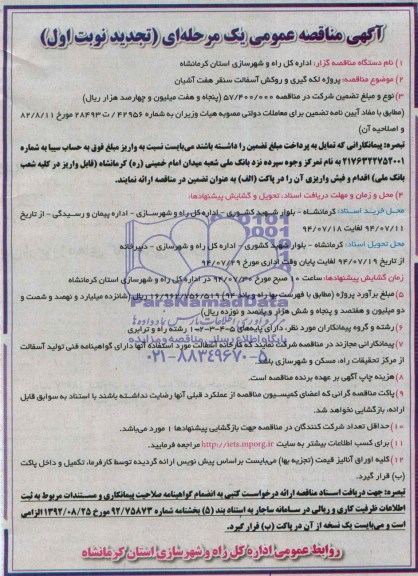 آگهی مناقصه عمومی یک مرحله‌ای (تجدید نوبت اول)
۱) نام دستگاه مناقصه گزار: اداره کل راه و شهرسازی استان کرمانشاه
۲) موضوع مناقصه: پروژه لکه گیری و روکش آسفالت سنقر هفت آشیان
۳) نوع و مبلغ تضمین شرکت در مناقصه ۵۷/۴۰۰/۰۰۰ (پنجاه و هفت میلیون و چهارصد هزار ریال)
(مطابق با مفاد آیین نامه تضمین برای معاملات دولتی مصوبه هیات وزیران به شماره ۴۲۹۵۶ / ت ۲۸۴۹۳ مورخ ۸۲/۸/۱۱
و اصلاحیه آن)
تبصره: پیمانکارانی که تمایل به پرداخت مبلغ تضمین را داشته باشند می‌بایست نسبت به واریز مبلغ فوق به حساب سیبا به شماره
۲۱۷۶۳۲۲۷۵۲۰۰۱ به نام تمرکز وجوه سپرده نزد بانک ملی شعبه میدان امام خمینی (ره) کرمانشاه (قابل واریز در کلیه شعب
بانک ملی) اقدام و فیش واریزی آن را در پاکت (الف) به عنوان تضمین در مناقصه ارائه نمایند.
۴) محل و زمان و مهلت دریافت اسناد، تحویل و گشایش پیشنهادها:
محل خرید اسناد: کرمانشاه - بلوار شهید کشوری - اداره کل راه و شهرسازی - اداره پیمان و رسیدگی - از تاریخ
۹۴/۰۷/۱۱ لغایت ۹۴/۰۷/۱۸
محل تحویل اسناد: کرمانشاه - بلوار شهید کشوری - اداره کل راه و شهرسازی - دبیرخانه
از تاریخ ۹۴/۰۷/۱۹ لغایت پایان وقت اداری مورخ ۹۴/۰۷/۲۹
زمان گشایش پیشنهادها: ساعت ۱۰ صبح مورخ ۹۴/۰۷/۳۰ در اداره کل راه و شهرسازی استان کرمانشاه
۵) مبلغ برآورد پروژه (مطابق با فهرست بها راه و باند ۹۴) ۱۶/۹۶۲/۷۵۶/۵۱۹ ریال (شانزده میلیارد و نهصد و شصت و
دو میلیون و هفتصد و پنجاه و شش هزار و پانصد و نوزده ریال)
۶) رشته و گروه پیمانکاران مورد نظر، دارای پایه‌های ۵-۴-۳-۲-۱ رشته راه و ترابری
۷) پیمانکارانی مجازند در مناقصه شرکت نمایند که کارخانه آسفالت مورد استفاده آنها دارای گواهینامه فنی تولید آسفالت
از مرکز تحقیقات راه، مسکن و شهرسازی باشد.
۸) هزینه چاپ آگهی بر عهده برنده مناقصه است.
۹) پاکت مناقصه گرانی که اعضای کمیسیون مناقصه از عملکرد قبلی آنها رضایت نداشته باشند با استناد به سوابق قابل
ارائه، بازگشایی نخواهد شد.
۱۰) حداقل تعداد شرکت کنندگان در مناقصه جهت بازگشایی پیشنهادها ۱ مورد می‌باشد.
۱۱) برای کسب اطلاعات بیشتر به سایت http://iets.mporg.ir مراجعه فرمایید.
۱۲) کلیه اوراق آنالیز قیمت (تجزیه بها) می‌بایست براساس پیش نویس ارائه گردیده توسط کارفرما، تکمیل و داخل پاکت
(ب) قرار گیرد.
تبصره: جهت دریافت اسناد مناقصه ارائه درخواست کتبی به انضمام گواهینامه صلاحیت پیمانکاری و مستندات مربوط به ثبت
اطلاعات ظرفیت کاری و ریالی در سامانه ساجار به استناد بند (۵) بخشنامه شماره ۹۲/۷۵۸۷۳ مورخ ۱۳۹۲/۰۸/۲۵ الزامی
است و می‌بایست یک نسخه از آن در پاکت (ب) قرار گیرد.
روابط عمومی اداره کل راه و شهرسازی استان کرمانشاه
ParsNamadData
پایگاه اطلاع رسانی مناقصه و مزایده
۰۲۱-۸۸۳۴۹۶۷۰-۵